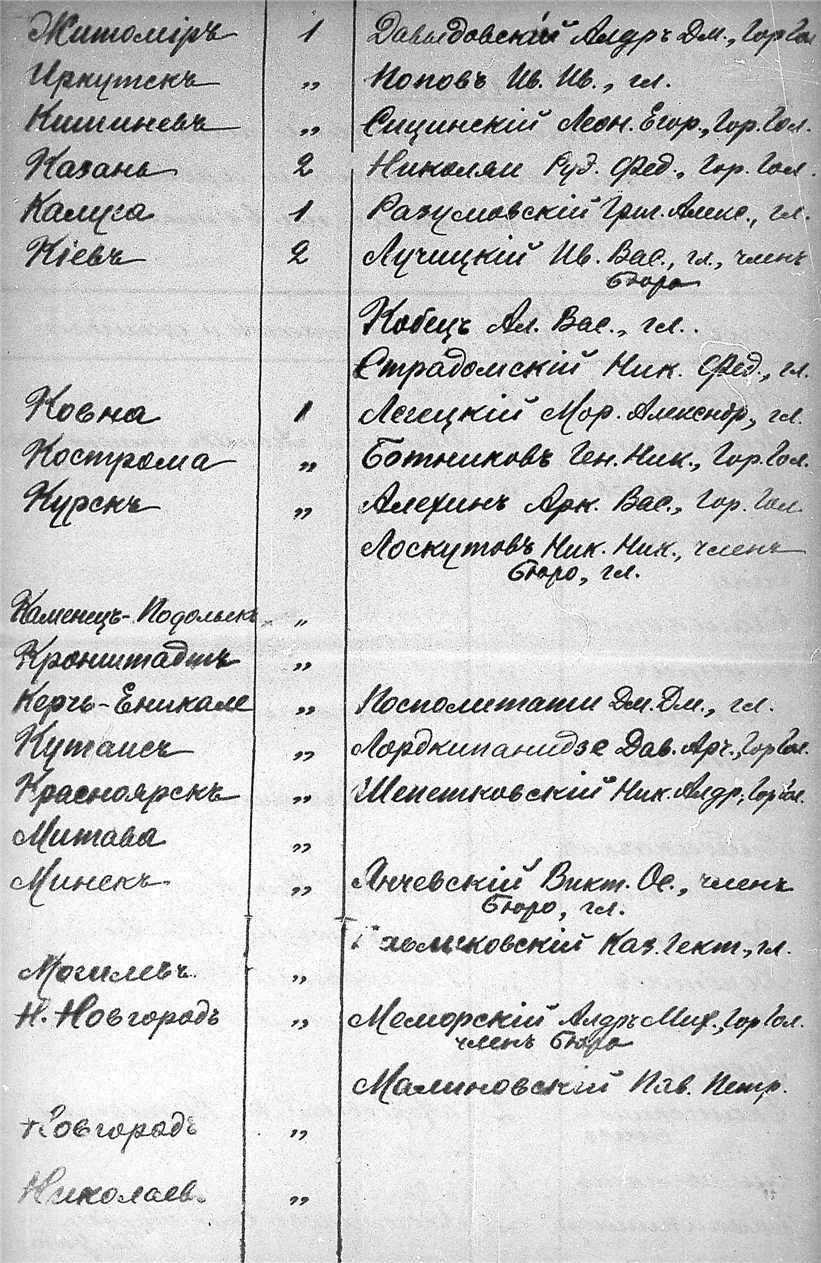 Житомiръ 1 Давыдовскiй Алдръ Дм., Гор Гол
Иркутскъ „ Поповъ Ив. Ив., гл.
Кишиневъ „ Сицинскiй Леон. Егор., Гор. Гол.
Казань 2 Николяи Руд. Фед., Гор. Гол.
Калуга 1 Разумовскiй Григ. Алекс., гл.
Кiевъ 2 Лучицкiй Ив. Вас., гл., членъ
бюро
Кобецъ Ал. Вас., гл.
Страдомскiй Ник. Фед., гл.
Ковна 1 Легецкiй Мор. Александр, гл.
Кострома „ Ботниковъ Ген. Ник., Гор. Гол.
Курскъ „ Алехинъ Арк. Вас., Гор. Гол.
Лоскутовъ Ник. Ник., членъ
бюро, гл.
Каменецъ-Подольскъ „
Кронштадтъ „
Керчь-Еникале „ Посполитаки Дм. Дм., гл.
Кутаисъ „ Лордкипанидзе Дав. Арч., Гор Гол.
Красноярскъ „ Шепетковскiй Ник. Алдр., Гор Гол.
Митава „
Минскъ „ Янчевскiй Викт. Ос., членъ
бюро, гл.
Каз. Гект., гл.
Могилевъ „
Н. Новгородъ „ Меморскiй Алдръ Мих., Гор Гол.
членъ бюро
Малиновскiй Пав. Петр.
Новгородъ „
Николаев. „